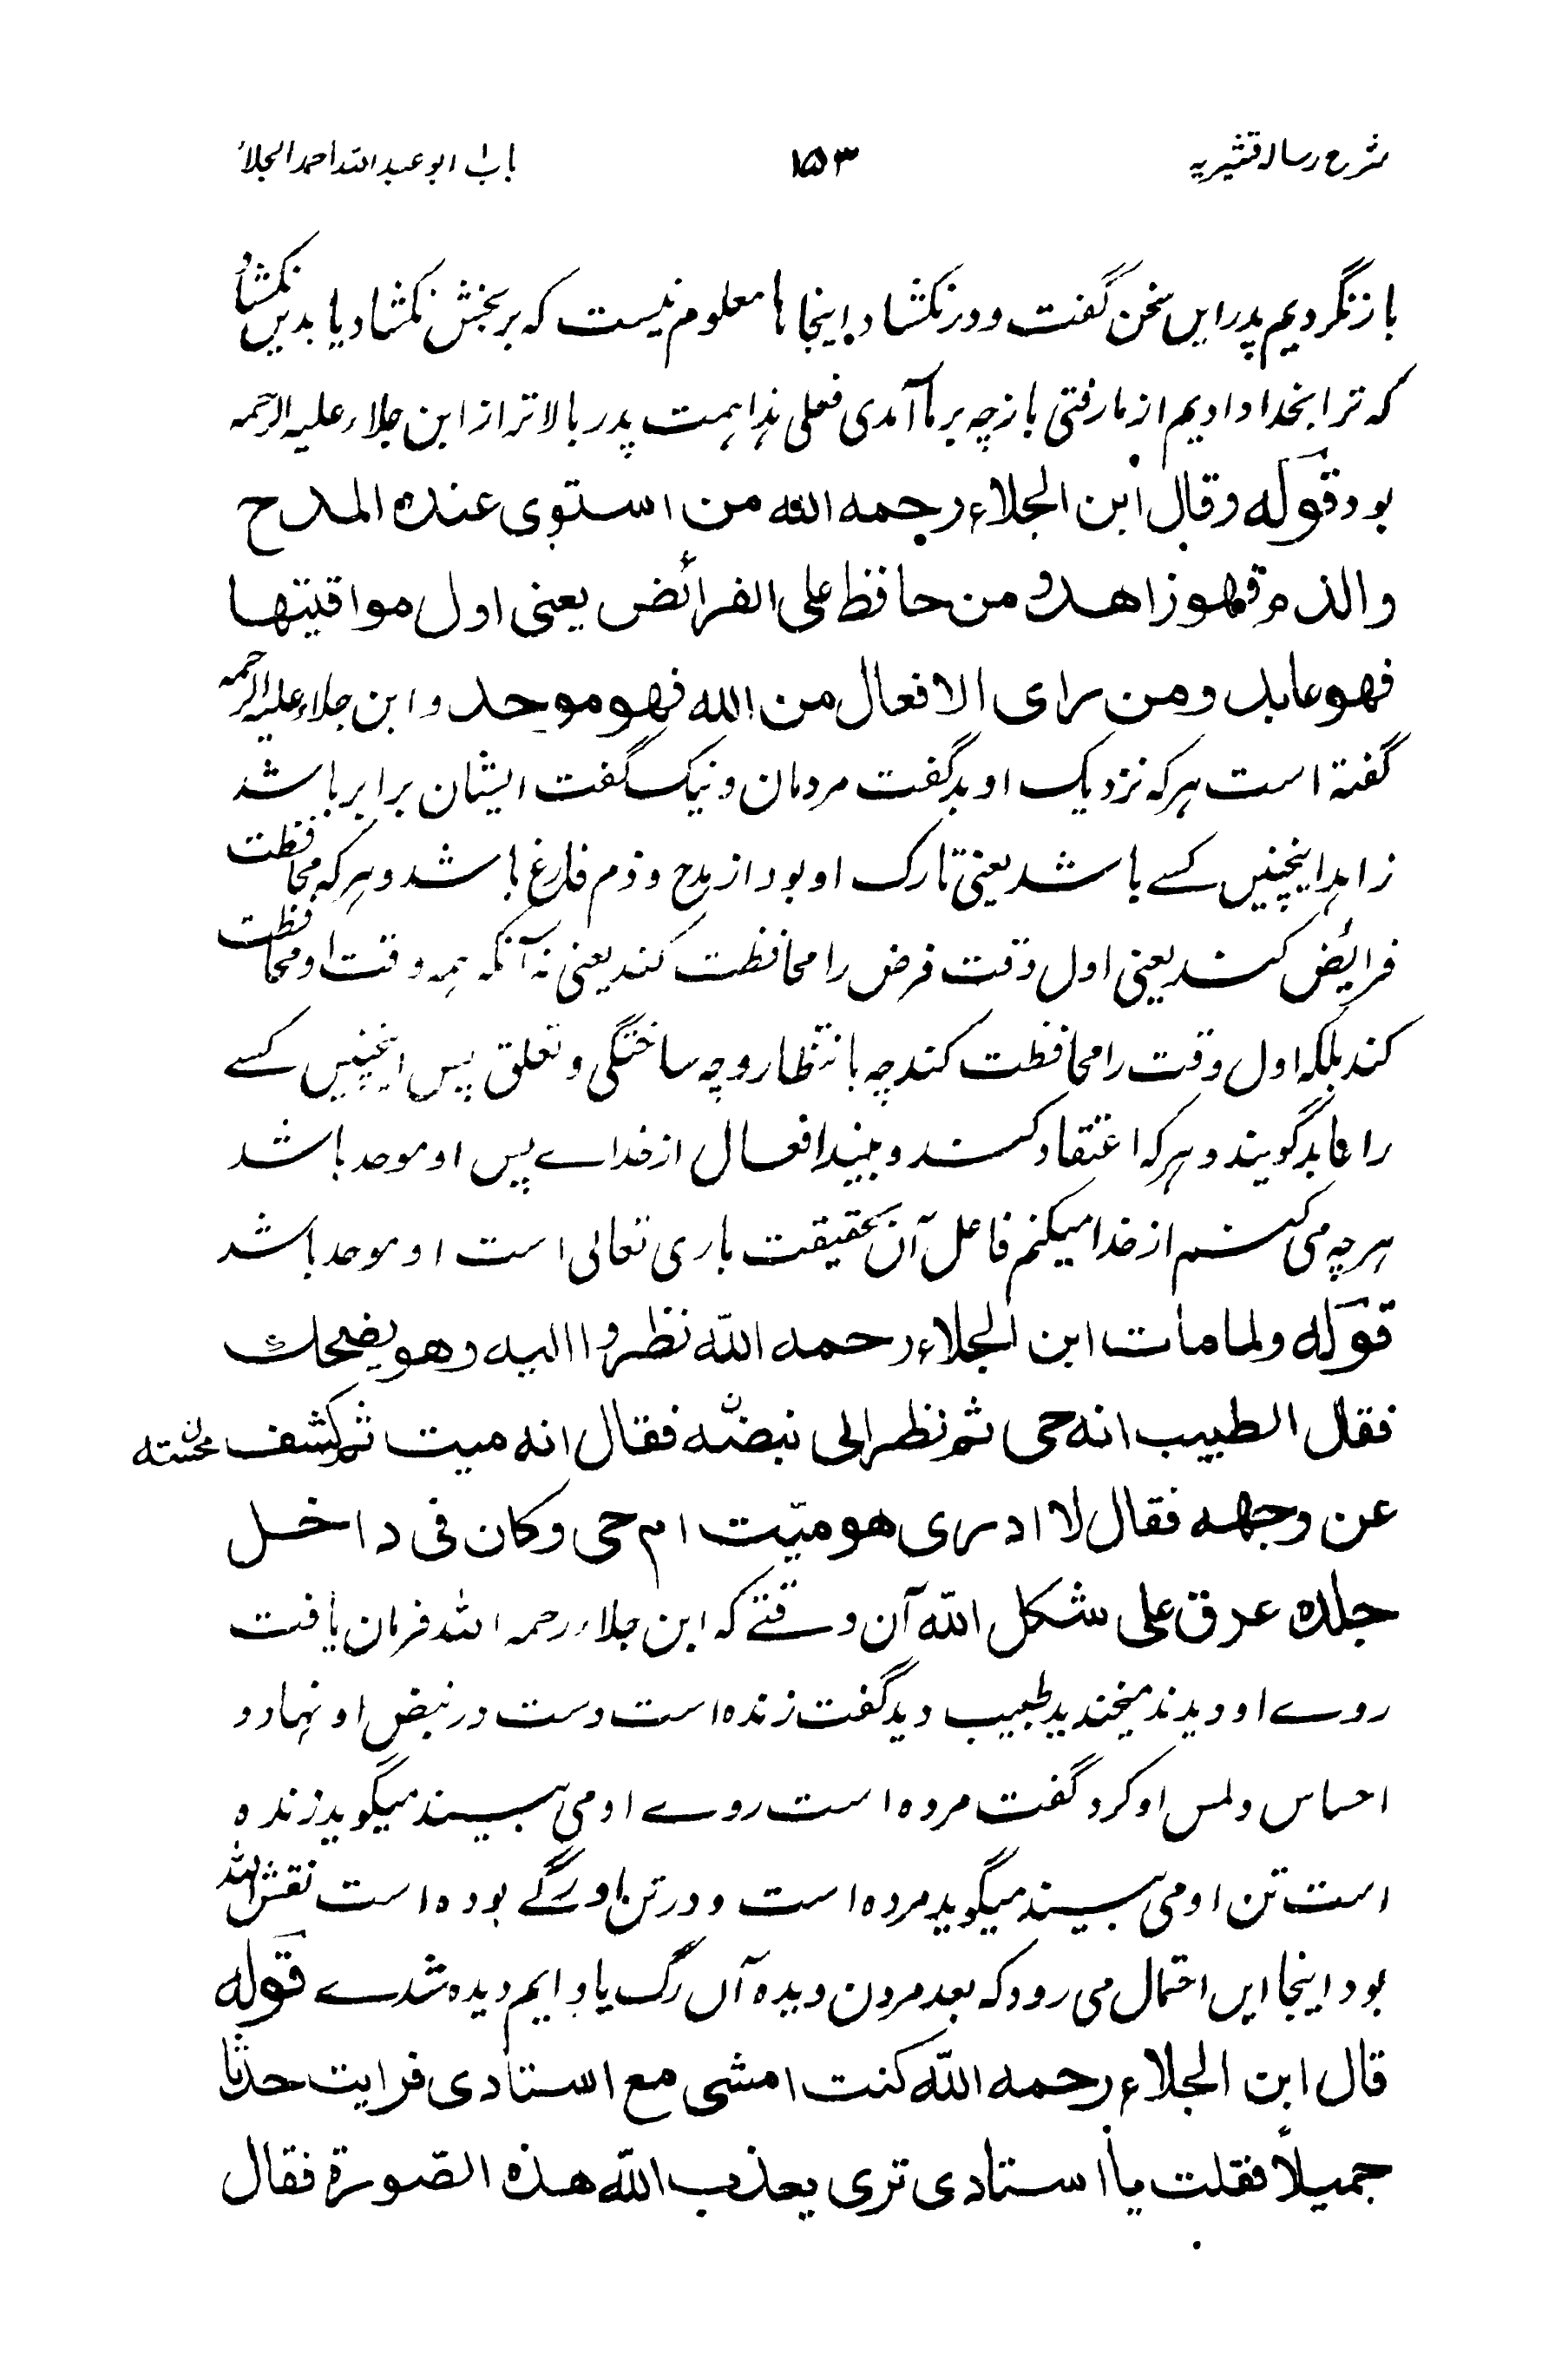 شرح رسالہ قشیریہ ۱۵۳ باب ابو عبداللہ احمد الجلاء
باز نگردیم پدر ایں سخن گفت و در نکشاد اینجا ہا معلوم نیست کہ بر بخشش نکشاد یا بدیں نکشاد
کہ ترا بخدا دادیم از ما رفتی باز چہ بر ما آمدی فعلی ہذا ہمت پدر بالا تر از ابن جلاء علیہ الرحمہ
بود قوله وقال ابن الجلاء رحمه الله من استوى عنده المدح
والذم فهو زاهد و من حافظ على الفرائض يعنى اول مواقيتها
فهو عابد ومن راى الافعال من الله فهو موحد و ابن جلاء علیہ الرحمہ
گفتہ است ہر کہ نزدیک او بد گفت مردمان و نیک گفت ایشان برابر باشد
زاہد اینچنیں کسے باشد یعنی تارک او بود از مدح و ذم فارغ باشد و ہر کہ محافظت
فرایض کند یعنی اول وقت فرض را محافظت کند یعنی نہ آنکہ ہمہ وقت او محافظت
کند بلکہ اول وقت را محافظت کند چہ بانتظار و چہ ساختگی و تعلق پس اینچنیں کسے
را عابد گویند و ہر کہ اعتقاد کند و بیند افعال از خداے پس او موحد باشد
ہر چہ می کنم از خدا میکنم فاعل آن بحقیقت باری تعالی است او موحد باشد
قوله ولما مات ابن الجلاء رحمه الله نظروا اليه وهو يضحك
فقال الطبيب انه حى ثم نظر الى نبضه فقال انه ميت ثم كشف
عن وجهه فقال لا ادرى هو ميّت ام حى وكان فى داخل
جلده عرق على شكل الله آن وقتے کہ ابن جلاء رحمہ اللہ فرمان یافت
روے او دیدند میخندید طبیب دید گفت زندہ است دست در نبض او نہاد و
احساس و لمس او کرد گفت مردہ است روے او می بیند میگوید زندہ
است تن او می بیند میگوید مردہ است و در تن او رگے بودہ است نقش اللہ
بود اینجا ایں احتمال می رود کہ بعد مردن دیدہ آں رگ یا دایم دیدہ شدے قوله
قال ابن الجلاء رحمه الله كنت امشى مع استادى فرايت حدثا
جميلاً فقلت يا استادى ترى يعذب الله هذه الصّورة فقال